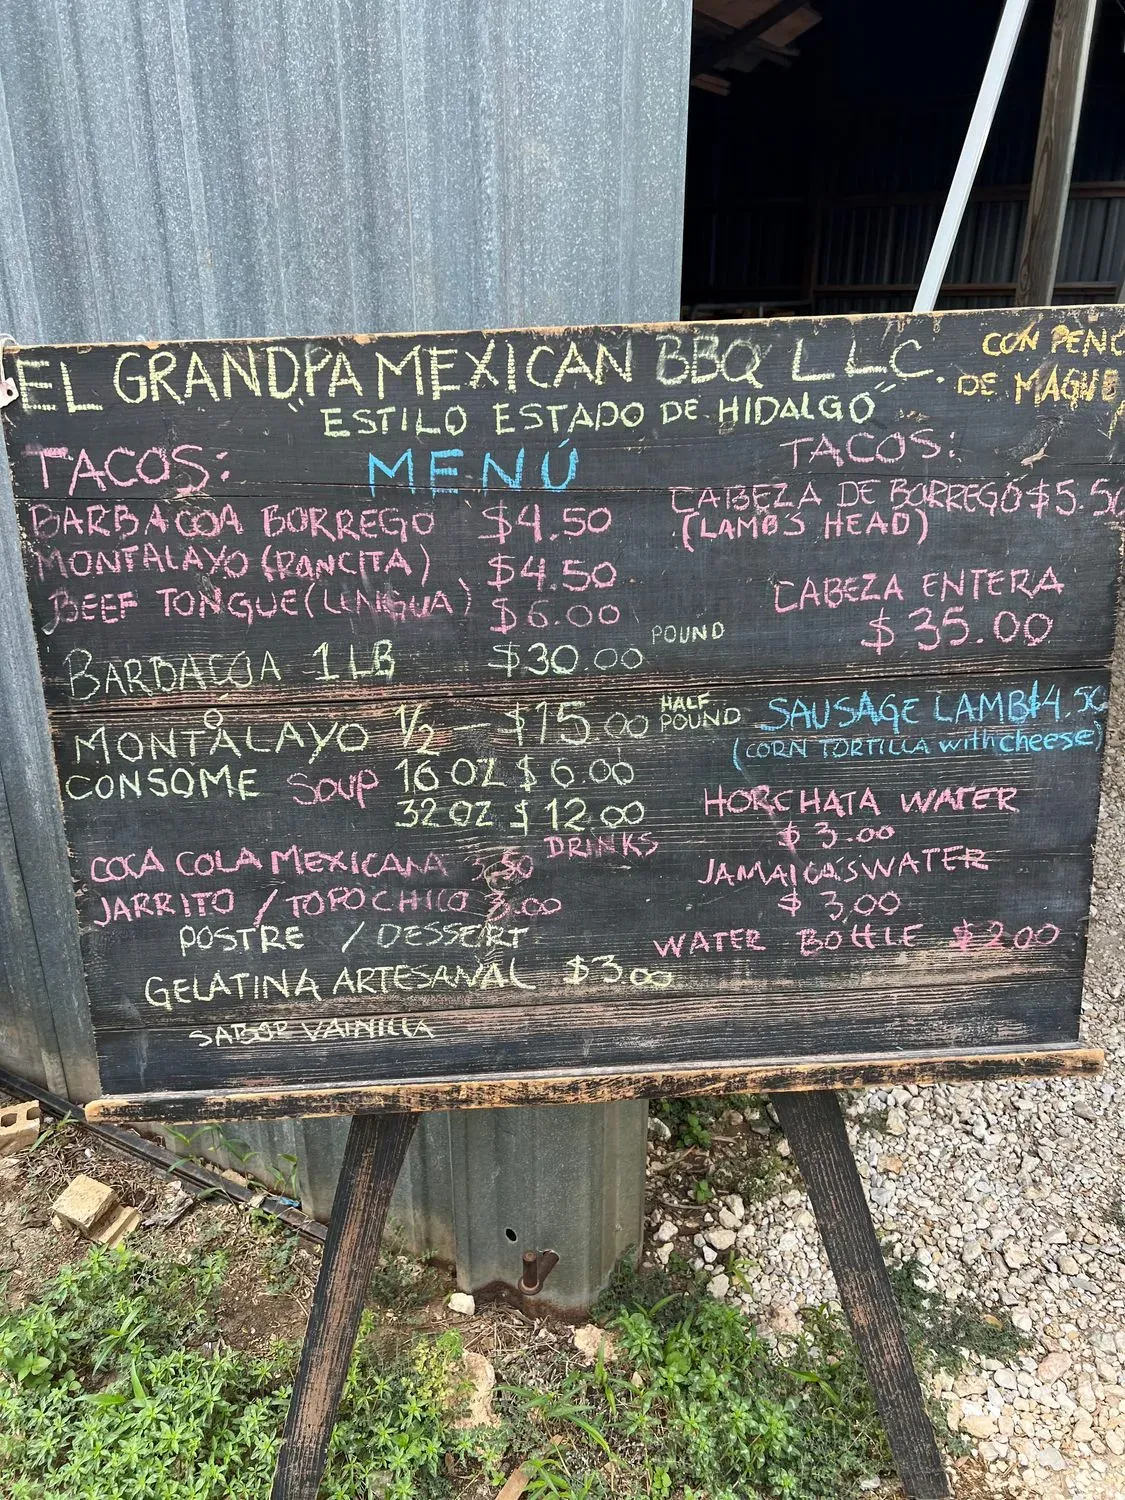 EL GRANDPA MEXICAN BBQ LLC.
CON PENC
DE MAGUE
"ESTILO ESTADO DE HIDALGO"
MENÚ
TACOS:
BARBACOA BORREGO $4.50
MONTALAYO (PANCITA) $4.50
BEEF TONGUE (LENGUA) $6.00
BARBACOA 1 LB $30.00 POUND
MONTALAYO 1/2 - $15.00 HALF POUND
CONSOME SOUP 16 OZ $6.00
32 OZ $12.00
DRINKS
COCA COLA MEXICANA 3.50
JARRITO / TOPO CHICO 3.00
POSTRE / DESSERT
GELATINA ARTESANAL $3.00
SABOR VAINILLA
TACOS:
CABEZA DE BORREGO $5.50
(LAMB'S HEAD)
CABEZA ENTERA
$35.00
SAUSAGE LAMB $4.50
(CORN TORTILLA with cheese)
HORCHATA WATER
$3.00
JAMAICA'S WATER
$3,00
WATER BOTTLE $2.00